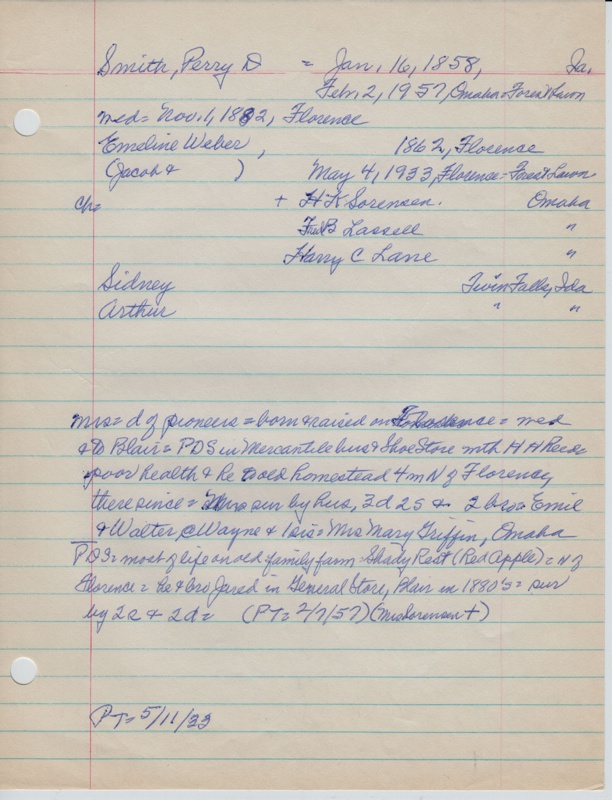 Smith, Perry D = Jan. 16, 1858, Ia.
Feb. 2, 1957, Omaha = Forest Lawn
med = Nov. 1, 1882, Florence
Emeline Weber, 1862, Florence
(Jacob & ) May 4, 1933, Florence = Forest Lawn
ch = + H K Sorensen. Omaha
Fred B Lassell "
Harry C Lane "
Sidney Twin Falls, Ida
Arthur " "
mrs = d of pioneers = born & raised on = med
& to Blair = PDS in Mercantile bus & Shoe Store with H H Reed =
poor health & he old homestead 4 m N of Florence,
there since = Mrs sur by hus, 3d 2s & 2 bro = Emil
& Walter, @ Wayne & 1 sis = Mrs Mary Griffin, Omaha
PDS = most of life on old family farm = Shady Rest (Red Apple) = N of
Florence = he & bro Jared in General Store, Blair in 1880's = sur
by 2s & 2d = (PT = 2/7/57) (Mrs Sorensen +)
PT = 5/11/33